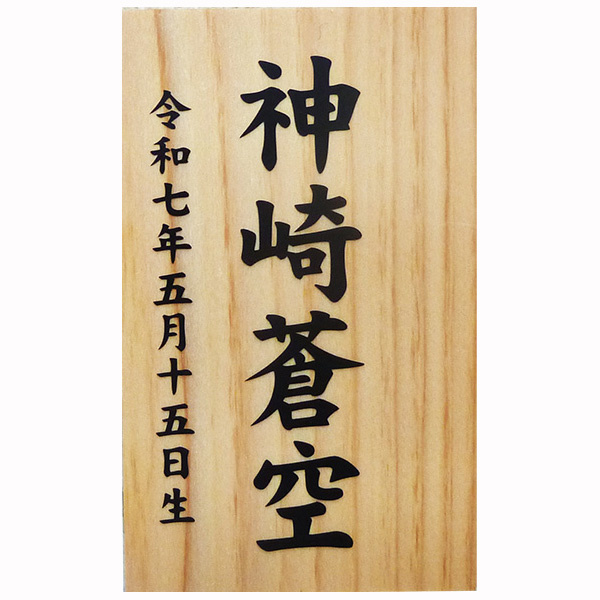 神崎蒼空
令和七年五月十五日生